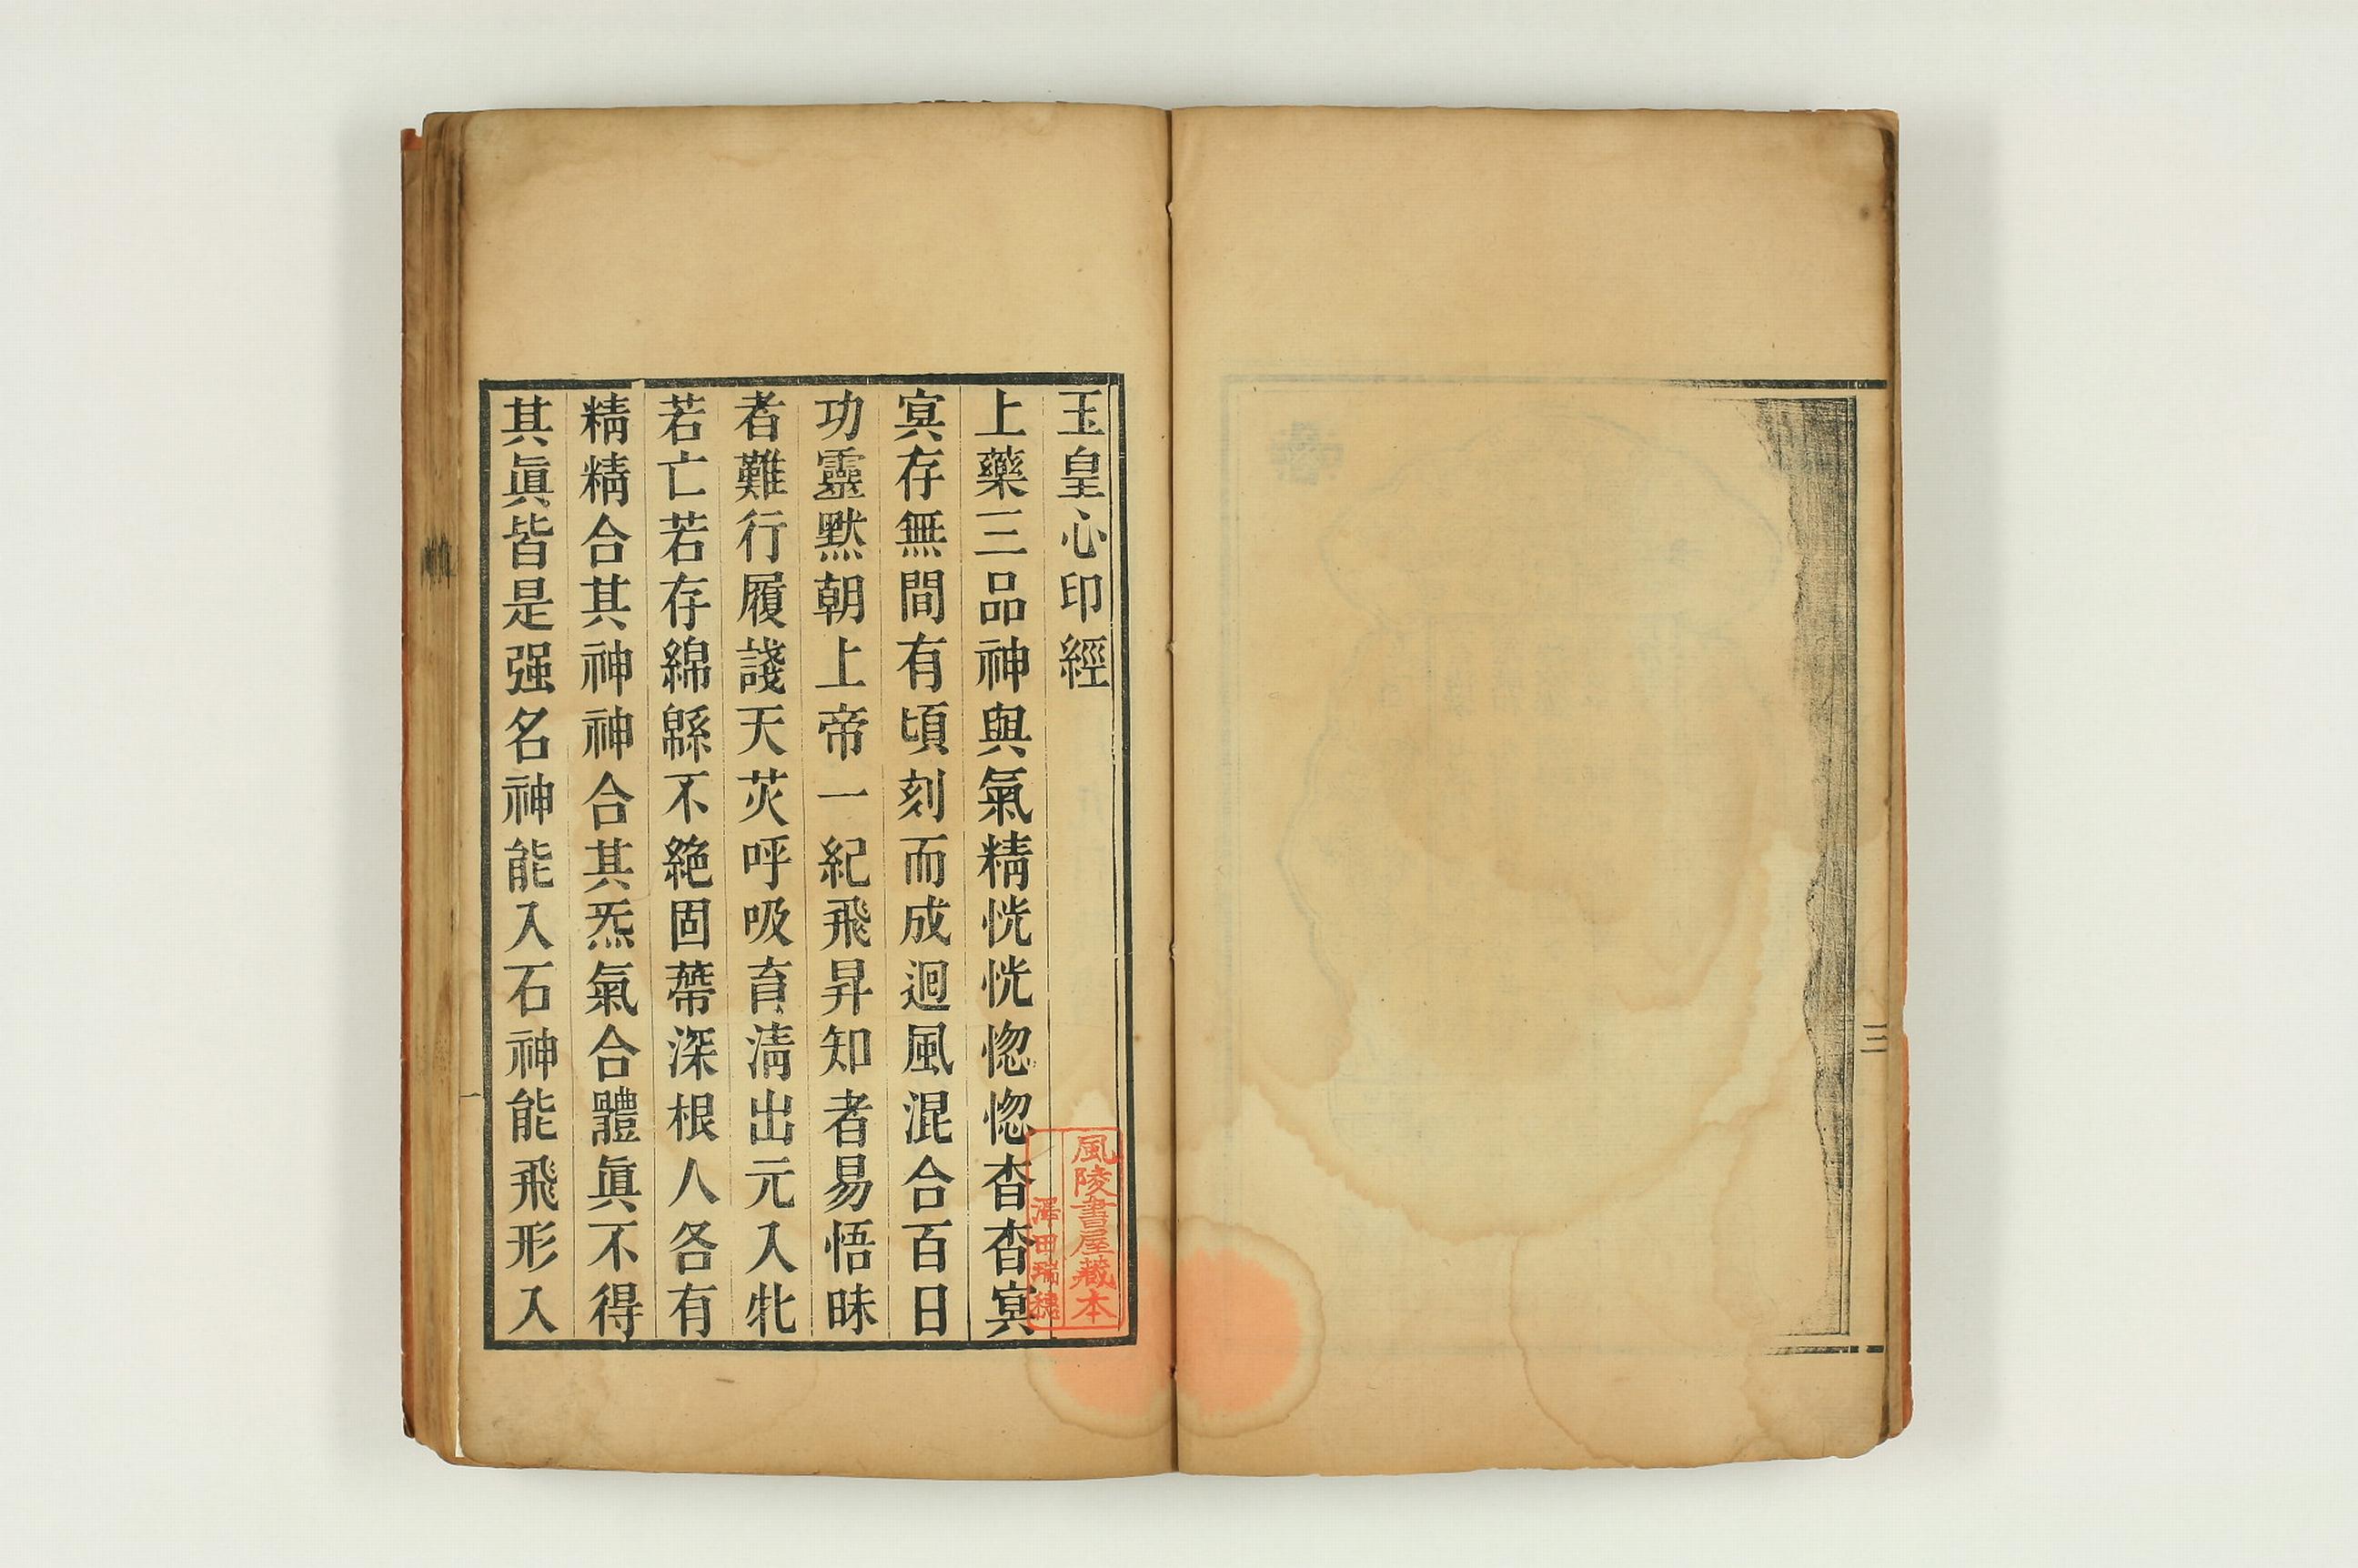 三
玉皇心印經
上藥三品神與氣精恍恍惚惚杳杳寞
寞存無間有頃刻而成迴風混合百日
功靈默朝上帝一紀飛昇知者易悟昧
者難行履諓天茨呼吸育淸出元入牝
若亡若存綿緜不絶固蔕深根人各有
精精合其神神合其炁氣合體眞不得
其眞皆是强名神能入石神能飛形入
一
風陵書屋藏本
澤田瑞穗